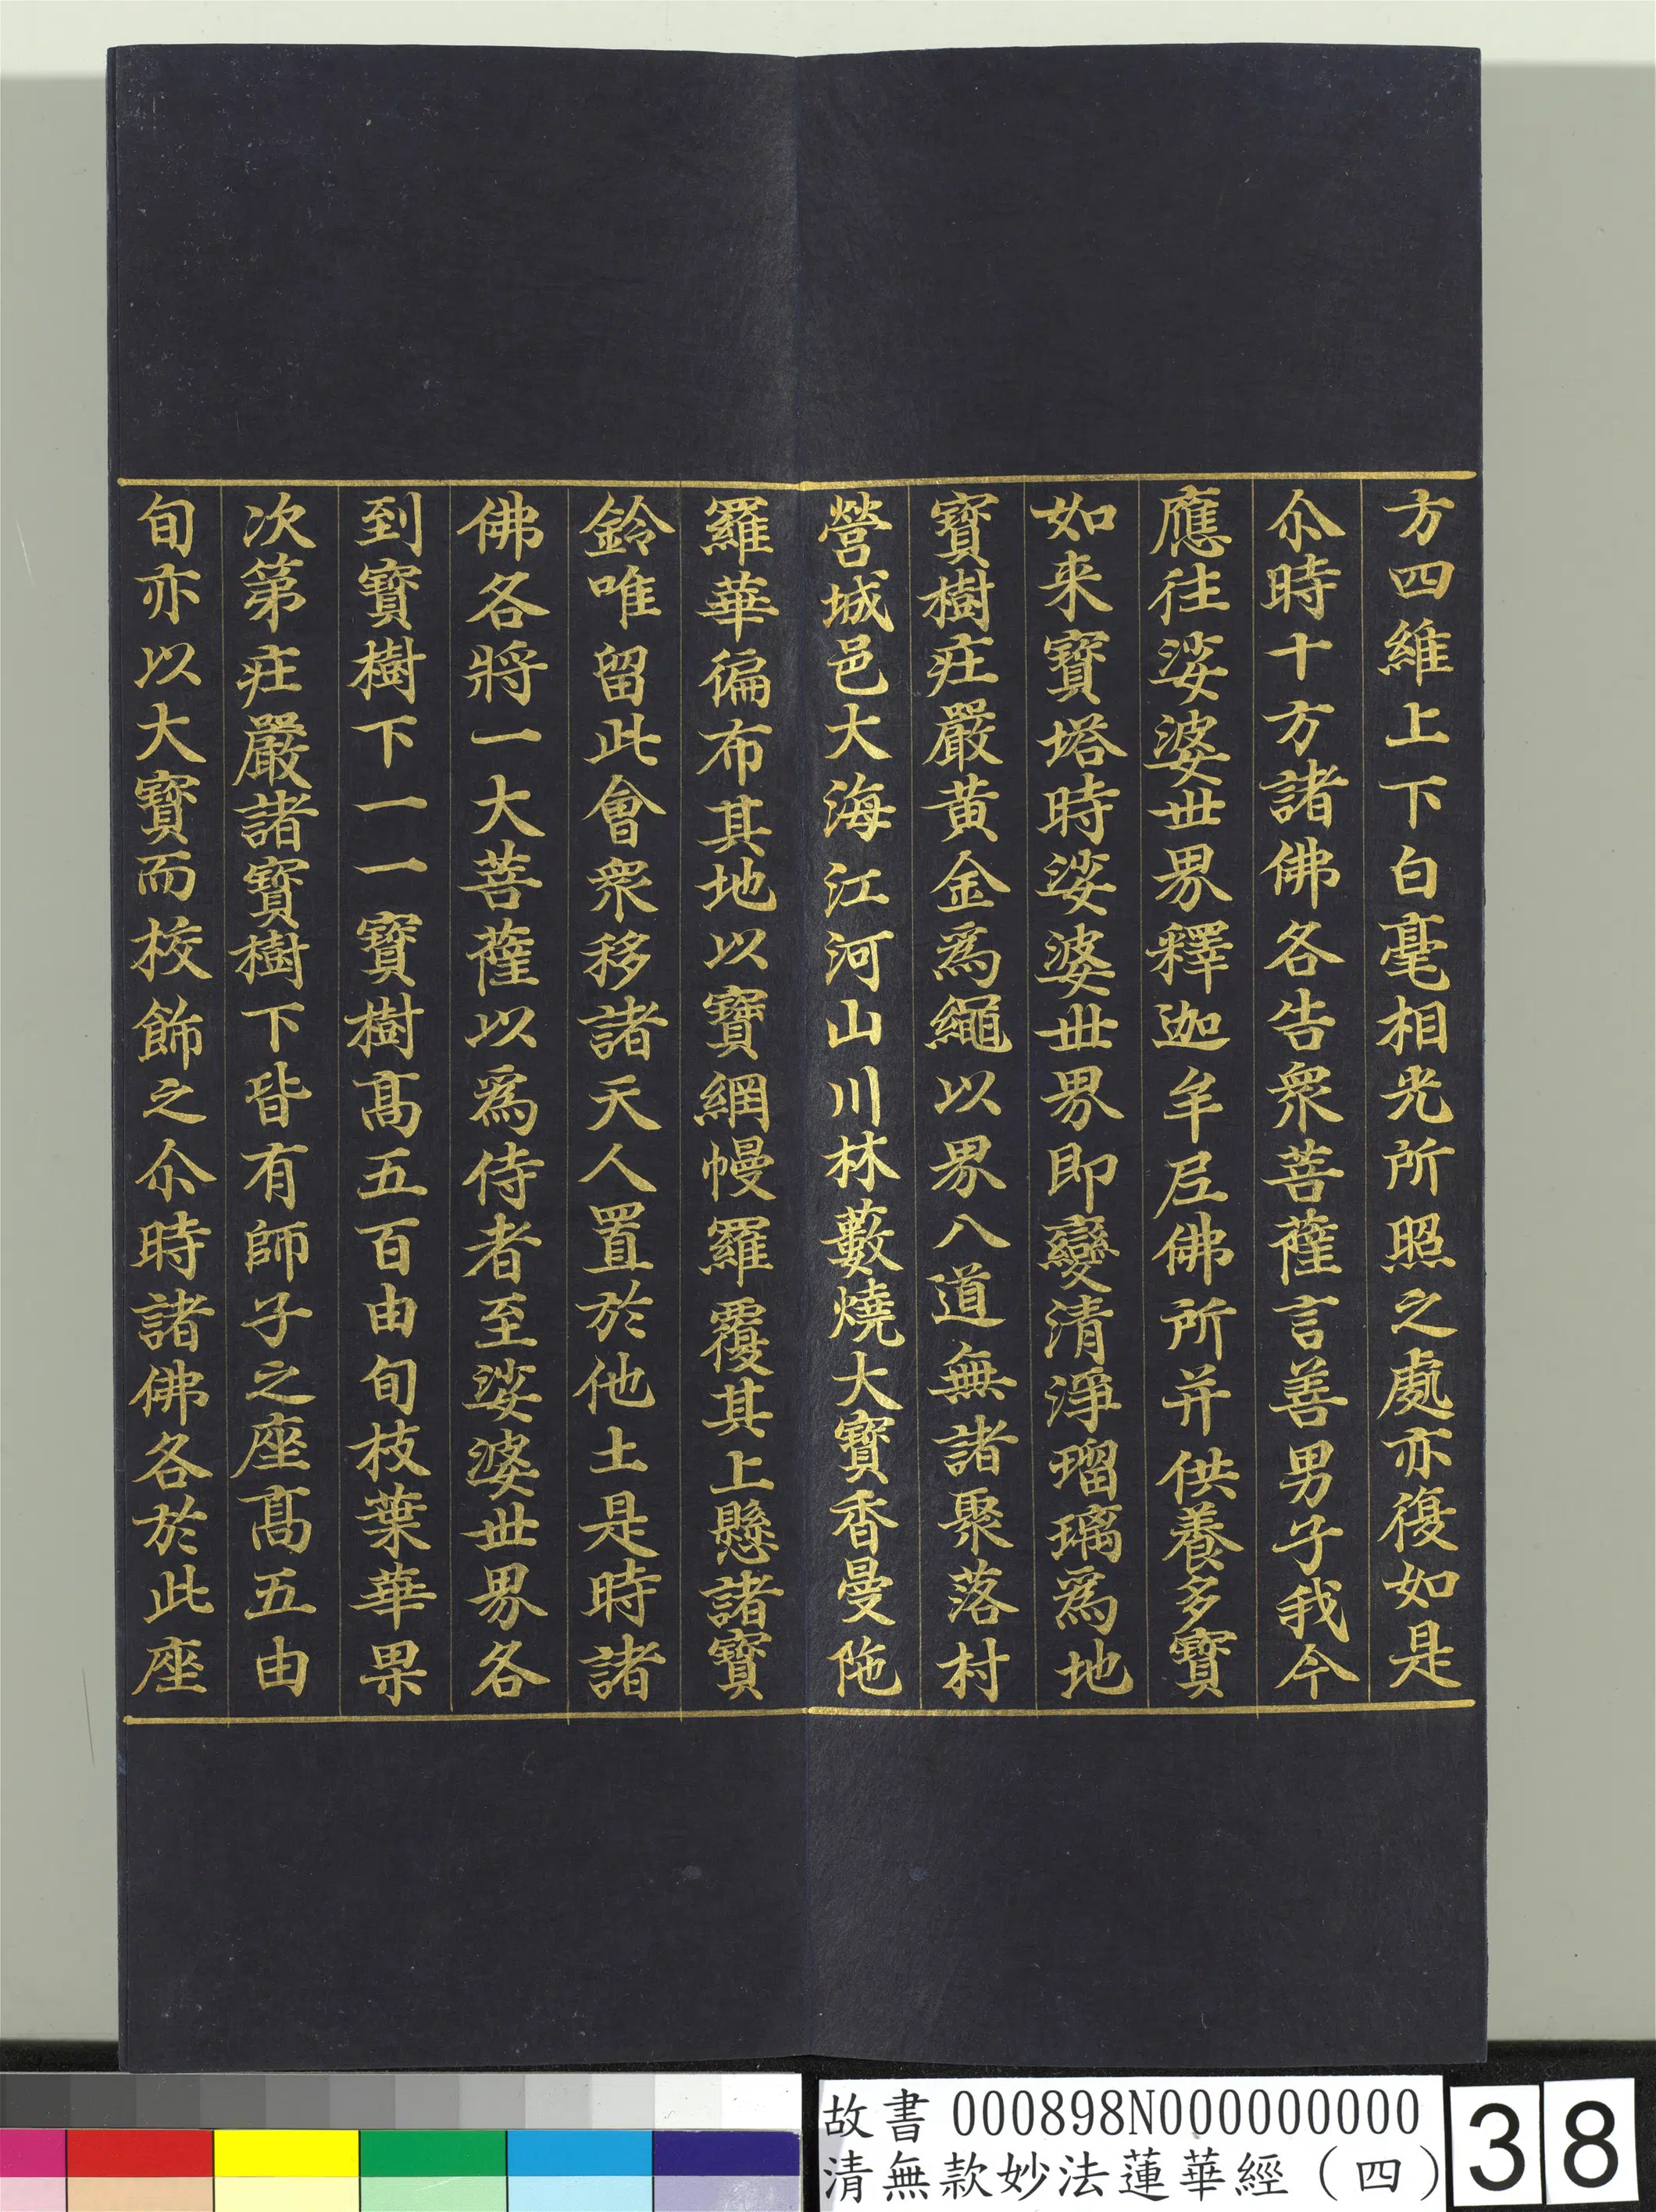 方四維上下白毫相光所照之處亦復如是
尒時十方諸佛各告衆菩薩言善男子我今
應往娑婆世界釋迦牟尼佛所并供養多寶
如来寶塔時娑婆世界即變清淨瑠璃爲地
寶樹莊嚴黃金爲繩以界八道無諸聚落村
營城邑大海江河山川林藪燒大寶香曼陁
羅華徧布其地以寶網幔羅覆其上懸諸寶
鈴唯留此會衆移諸天人置於他土是時諸
佛各將一大菩薩以爲侍者至娑婆世界各
到寶樹下一一寶樹髙五百由旬枝葉華果
次第莊嚴諸寶樹下皆有師子之座髙五由
旬亦以大寶而校飾之尒時諸佛各於此座
故書 000898N000000000
清無款妙法蓮華經(四)
38